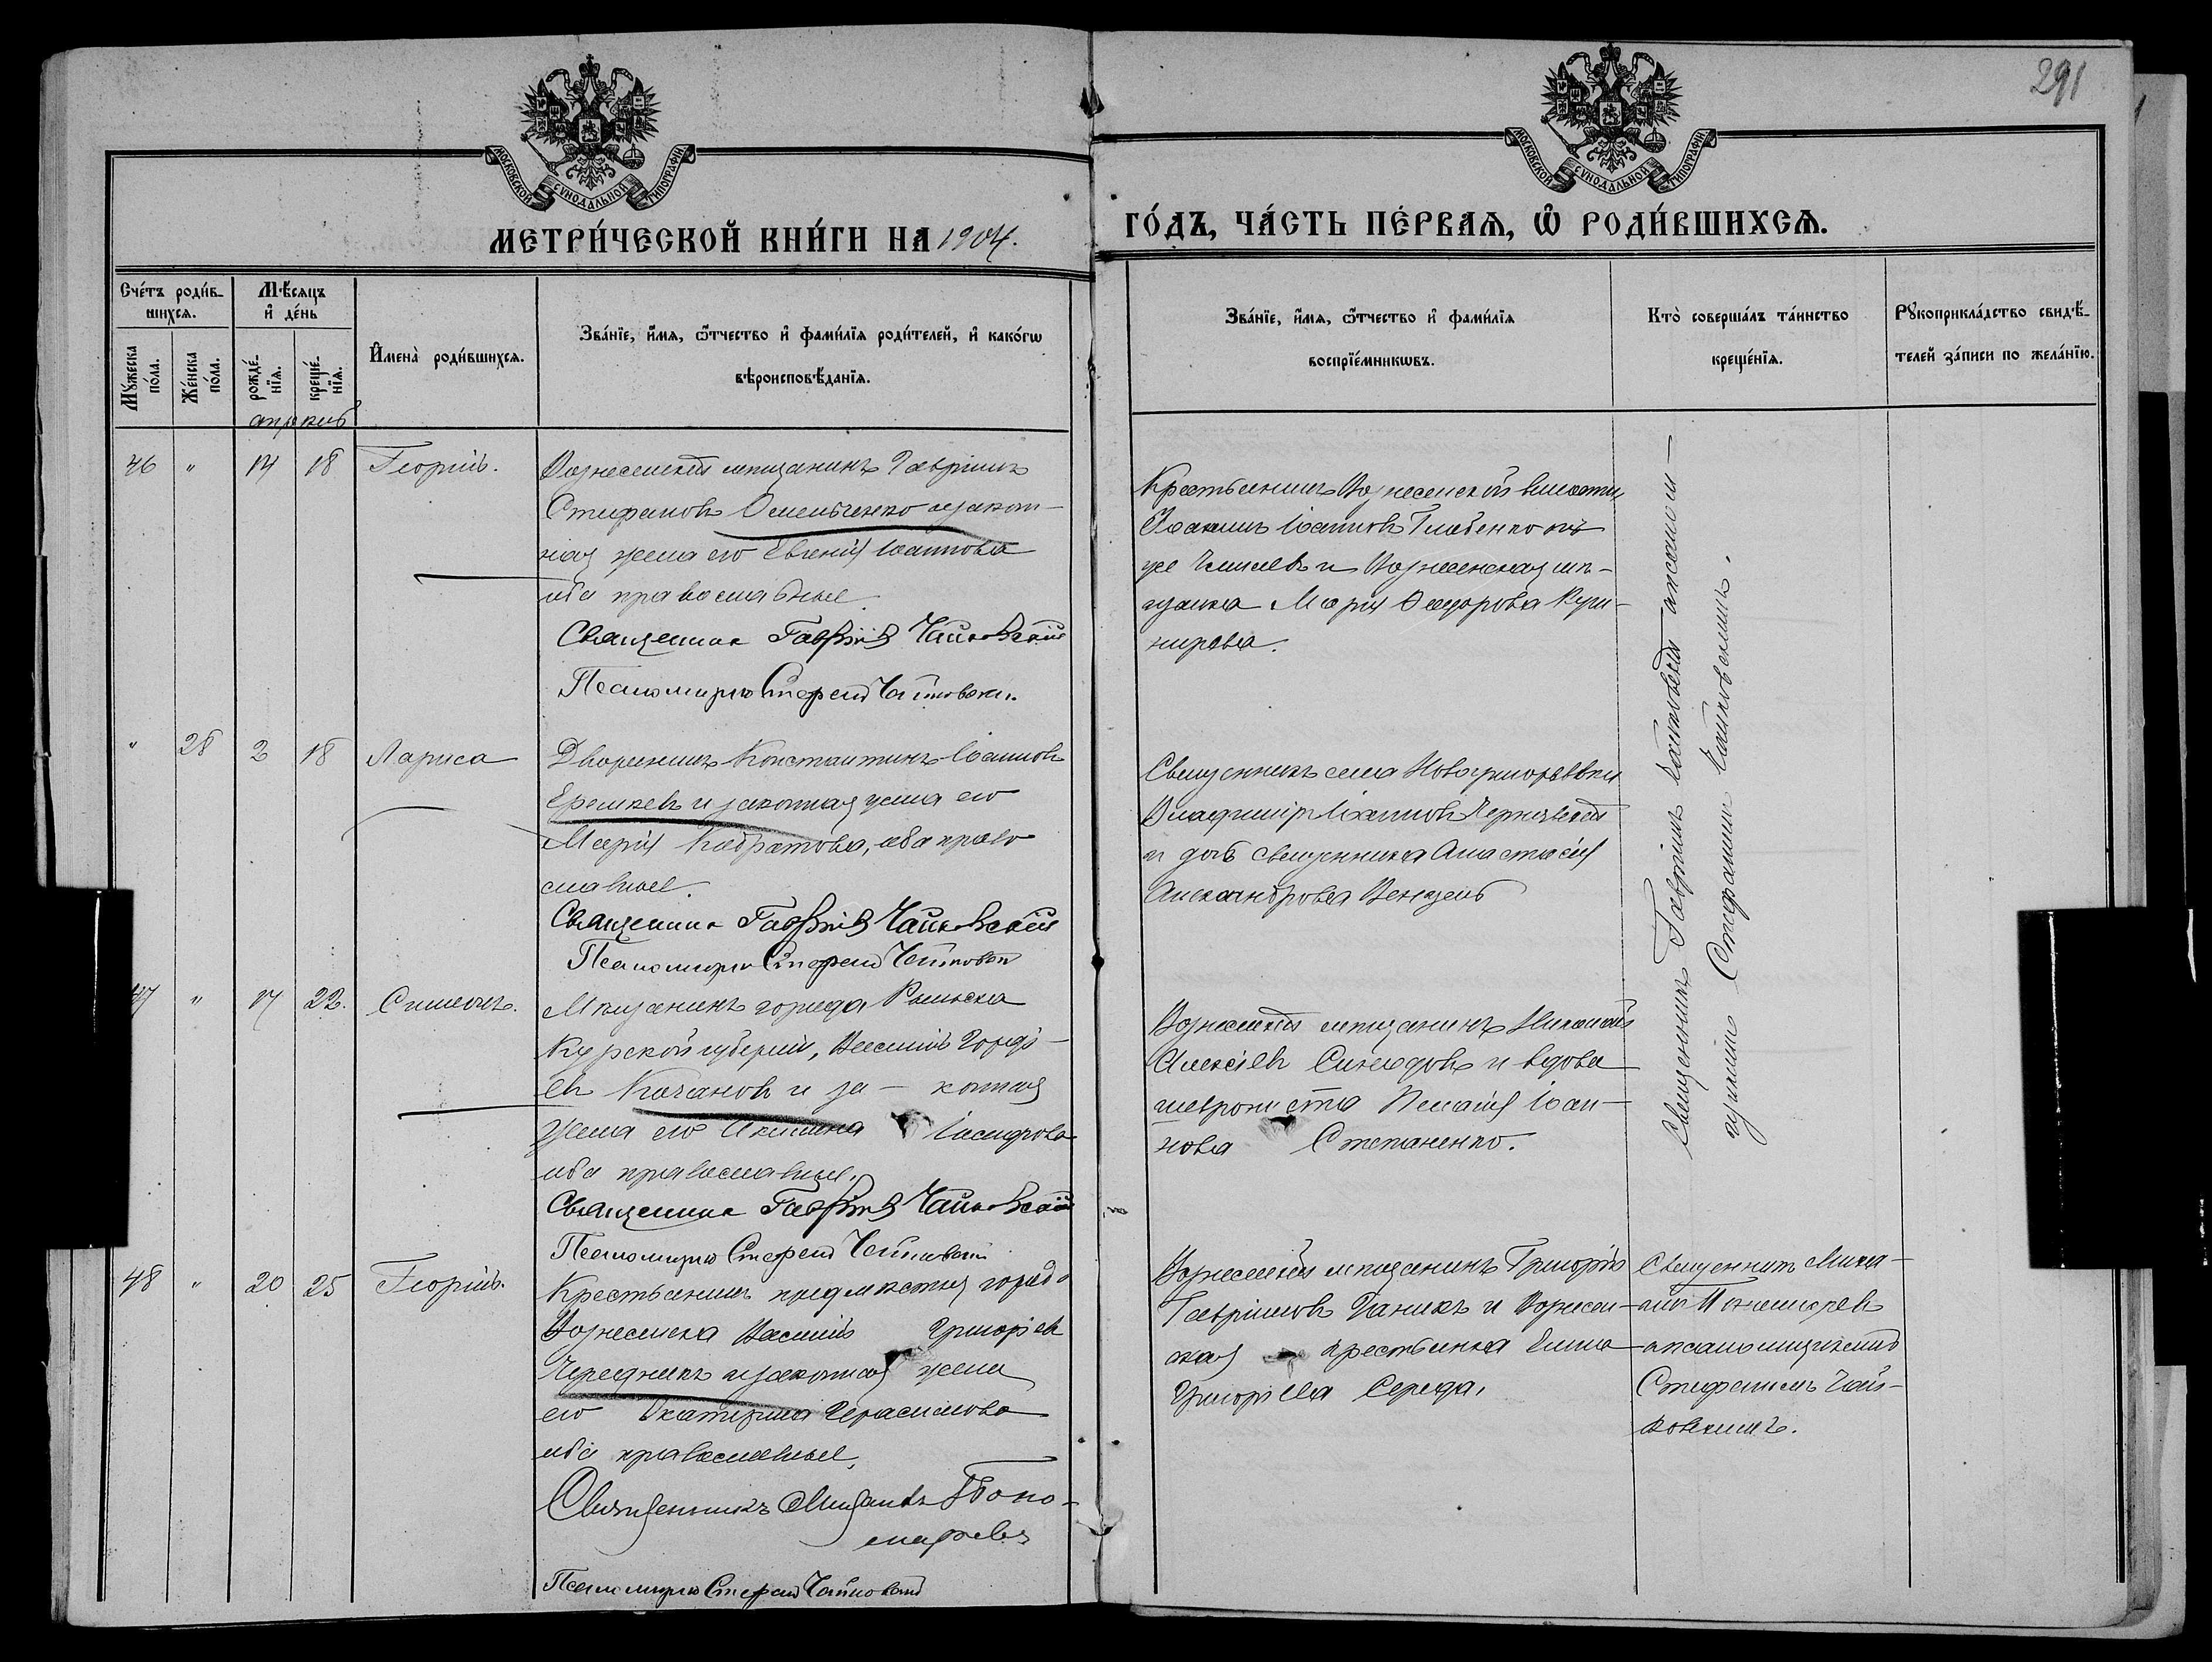 291
МОСКОВСКОЙ СѴНОДАЛЬНОЙ ТИПОГРАФІИ
МОСКОВСКОЙ СѴНОДАЛЬНОЙ ТИПОГРАФІИ
МЕТРИ́ЧЕСКОЙ КНИ́ГИ НА 1904.
ГО́ДЪ, ЧА́СТЬ ПЕ́РВАѦ, Ѡ РОДИ́ВШИХСѦ.
Сче́тъ роди́в-
шихсѧ.
Мѣ́сѧцъ
и҆ де́нь
Мꙋ́жеска
по́ла.
Же́нска
по́ла.
рожде́-
нїѧ.
креще́-
нїѧ.
И҆мена̀ роди́вшихсѧ.
Зва́нїе, и҆́мѧ, ѻ҆́тчество и҆ фами́лїѧ роди́телей, и҆ како́гѡ
вѣроисповѣ́данїѧ.
Зва́нїе, и҆́мѧ, ѻ҆́тчество и҆ фами́лїѧ
воспрїе́мникѡвъ.
Кто̀ соверша́лъ та́инство
креще́нїѧ.
Рꙋкоприкла́дство свидѣ́-
телей за́писи по жела́нїю.
апрель
46 " 14 18 Георгій.
Вознесенскій мѣщанинъ Гавріилъ
Стефановъ Омельченко и закон-
ная жена его Евгенія Іоаннова
оба православные.
Священник Гавріил Чайковский
Псаломщик Стефан Чайковский
Крестьянинъ Вознесенской волости
Іоаннов
же и Вознесенская мѣ-
щанка Марія Ѳеодорова Куш-
нирова.
Священникъ Гавріилъ Чайковскій съ псаломщ-
икомъ Стефаномъ Чайковскимъ.
" 28 2 18 Лариса
Дворянинъ Константинъ Іоаннов
Ерешкевъ и законная жена его
Марія Кодратова, оба право
славные.
Священник Гавріил Чайковский
Псаломщик Стефан Чайковский
Священникъ села Новогригорьевки
Владиміръ Іоаннов Чернявскій
и дочь священника Анастасія
Александрова Венцель
47 " 17 22. Симеонъ.
Мѣщанинъ города Рыльска
Курской губерніи, Василій Гордѣ-
евъ Качанов и за- конная
жена его Акилина
оба православные.
Священник Гавріил Чайковский
Псаломщик Стефан Чайковский
Вознесенскій мѣщанинъ Николай
Алексѣевъ и вдова
Пелагія Іоан-
нова Степаненко.
48 " 20 25 Георгій.
Крестьянинъ предмѣстья города
Вознесенска Василій Григорьев
Чередникъ и законная жена
его Екатерина Герасимова
оба православные.
Священникъ Михаилъ Поно-
маревъ
Псаломщик Стефан Чайковский
Вознесенскій мѣщанинъ Григорій
Гавріиловъ Даникъ и Вознесен-
ская крестьянка Елена
Григорьева Середа.
Священникъ Миха-
илъ Пономаревъ
съ псаломщикомъ
Стефаномъ Чай-
ковскимъ.